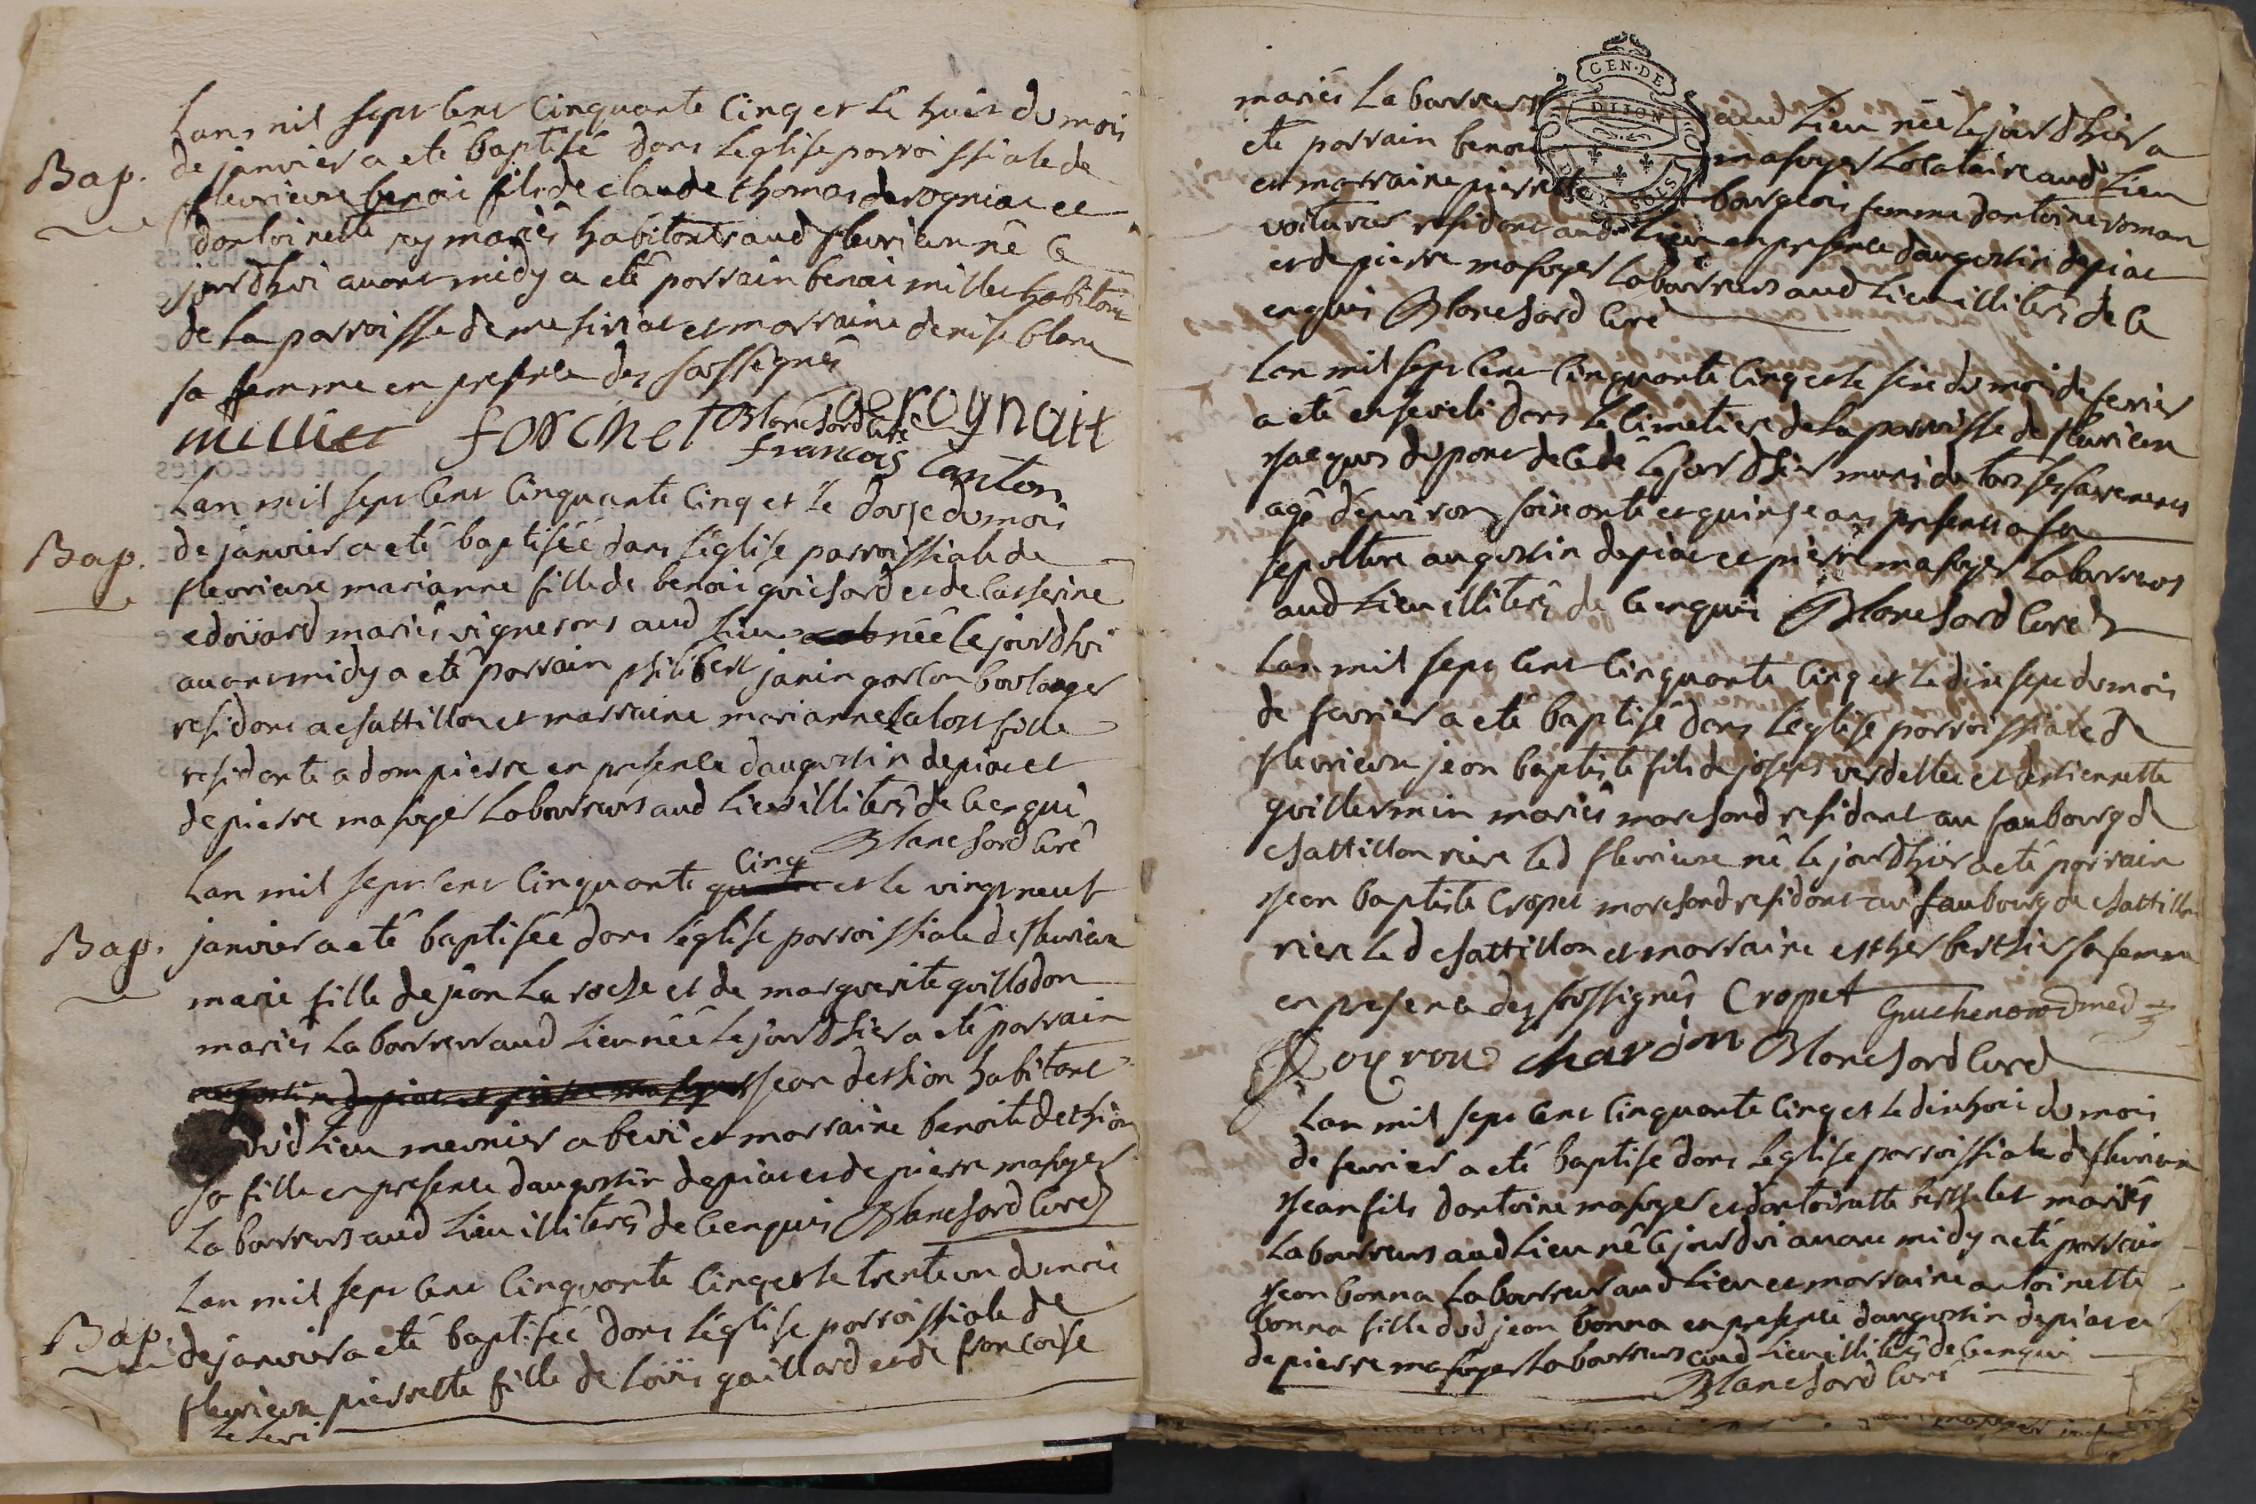 Lan mil sept cent cinquante cinq et le huit du mois
Bap. de janvier a eté baptisé dans leglise parroissiale de
fleurieux benoit fils de claude thomas derogniat et
dantoinette rey mariés habitants aud fleurieu né ce
jourdhui avant midy a eté parrain benoit millet habitant
de la parroisse de mesiriat et marraine denise blanc
sa femme en presence des soussignés
millet forchet Blanchard curé derognait
francois Canton
Lan mil sept cent cinquante cinq et le douze du mois
Bap. de janvier a eté baptisée dans leglise parroissiale de
fleurieux marianne fille de benoit guichard et de catherine
edoüard mariés vignerons aud lieu née ce jourdhui
avant midy a eté parrain philibert janin garcon boulanger
resident a chattillon et marraine marianne fille
residante a dompierre en presence daugustin depiat et
de pierre masuyer laboureurs aud lieu illiterés de ce enquis
Blanchard curé
Lan mil sept cent cinquante cinq et le vingt neuf
Bap. janvier a eté baptisée dans leglise parroissiale de fleurieux
marie fille de jean La roche et de marguerite guillodon
mariés laboureurs aud lieu née le jourdhier a eté parrain
augustin depiat et pierre masuyer jean dethion habitant
dud lieu meunier a et marraine benoite dethion
sa fille en presence daugustin depiat et de pierre masuyer
laboureurs aud lieu illiterés de ce enquis Blanchard curé
Lan mil sept cent cinquante cinq et le trente un du mois
Bap. de janvier a eté baptisée dans leglise parroissiale de
fleurieux pierrette fille de loüis gaillard et de francoise
mariés laboureurs aud lieu née le jourdhier a
GEN. DE
DIJON
DEUX SOLS
eté parrain benoit masuyer locataire aud lieu
et marraine pierrette bourgeois femme dantoine roman
voiturier resident aud lieu en presence daugustin depiat
et de pierre masuyer laboureurs aud lieu illiterés de ce
enquis Blanchard curé
Lan mil sept cent cinquante cinq et le seize du mois de fevrier
a eté enseveli dans le cimetiere de la parroisse de fleurieux
jacques dupont decedé le jourdhier muni de tous ses sacrements
agé denviron soixante et quinze ans presents a sa
sepulture augustin depiat et pierre masuyer laboureurs
aud lieu illiterés de ce enquis Blanchard curé
Lan mil sept cent cinquante cinq et le dix sept du mois
de fevrier a eté baptisé dans leglise parroissiale de
fleurieux jean baptiste fils de joseph verdellet et destiennette
guillermin mariés marchand resident au faubourg de
chattillon riere led fleurieux né le jourdhier a eté parrain
jean baptiste Cropet marchand resident au faubourg de chattillon
riere led chattillon et marraine esther berthier sa femme
en presence des soussignés Cropet Guichenon
chardon Blanchard curé
Lan mil sept cent cinquante cinq et le dixhuit du mois
de fevrier a eté baptisé dans leglise parroissiale de fleurieux
jean fils dantoine masuyer et dantoinette berthelet mariés
laboureurs aud lieu né ce jourdui avant midy a eté parrain
jean bonna laboureur aud lieu et marraine antoinette
bonna fille dud jean bonna en presence daugustin depiat et
de pierre masuyer laboureurs aud lieu illiterés de ce enquis
Blanchard curé